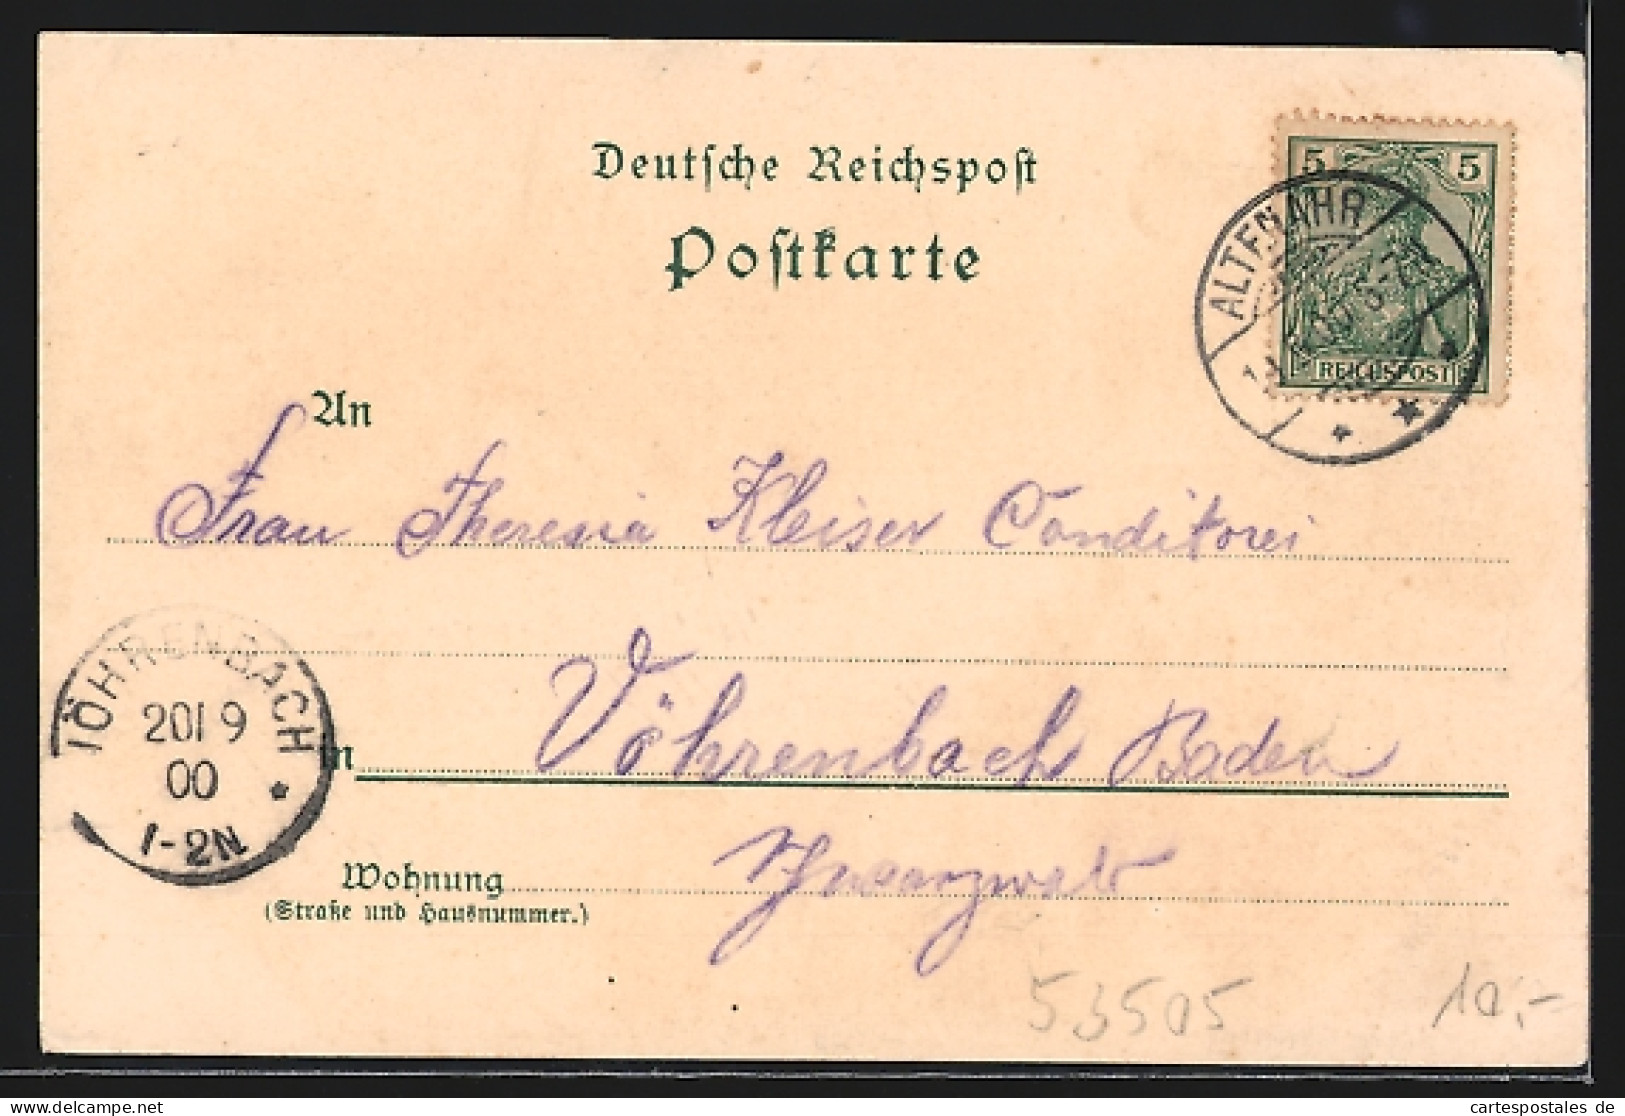 Deutsche Reichspost
Postkarte
5 5
REICHSPOST
ALTENAHR
An
Frau Theresia Kleiser Conditorei
in Vöhrenbach Baden
VÖHRENBACH
20/9
00
1-2N
Wohnung Schwarzwald
(Straße und Hausnummer.)
53505
10,-
cartespostales de